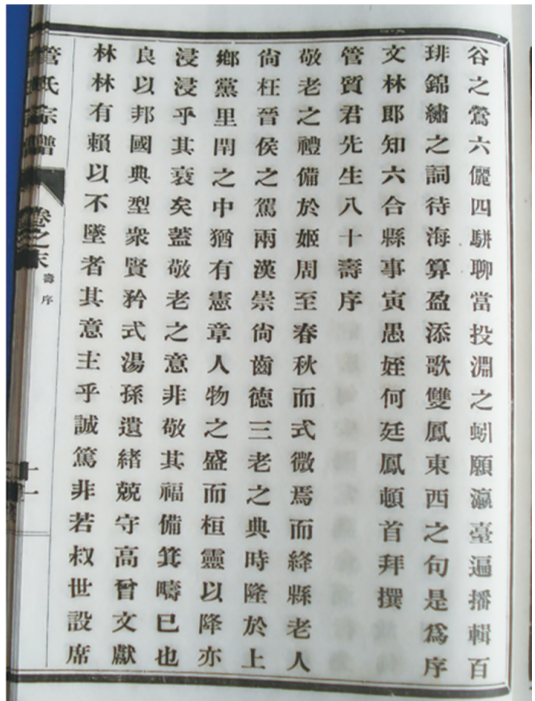 谷之鶯六儷四駢聊當投淵之蚓願瀛臺遍播輯百
琲錦繡之詞待海算盈添歌雙鳳東西之句是爲序
文林郎知六合縣事寅愚姪何廷鳳頓首拜撰
管質君先生八十壽序
敬老之禮備於姬周至春秋而式微焉而絳縣老人
尙枉晉侯之駕兩漢崇尙齒德三老之典時隆於上
鄉黨里閈之中猶有憲章人物之盛而桓靈以降亦
浸浸乎其衰矣蓋敬老之意非敬其福備箕疇已也
良以邦國典型衆賢矜式湯孫遺緒兢守高曾文獻
林林有賴以不墜者其意主乎誠篤非若叔世設席
管氏宗譜
卷之末
壽序
十一